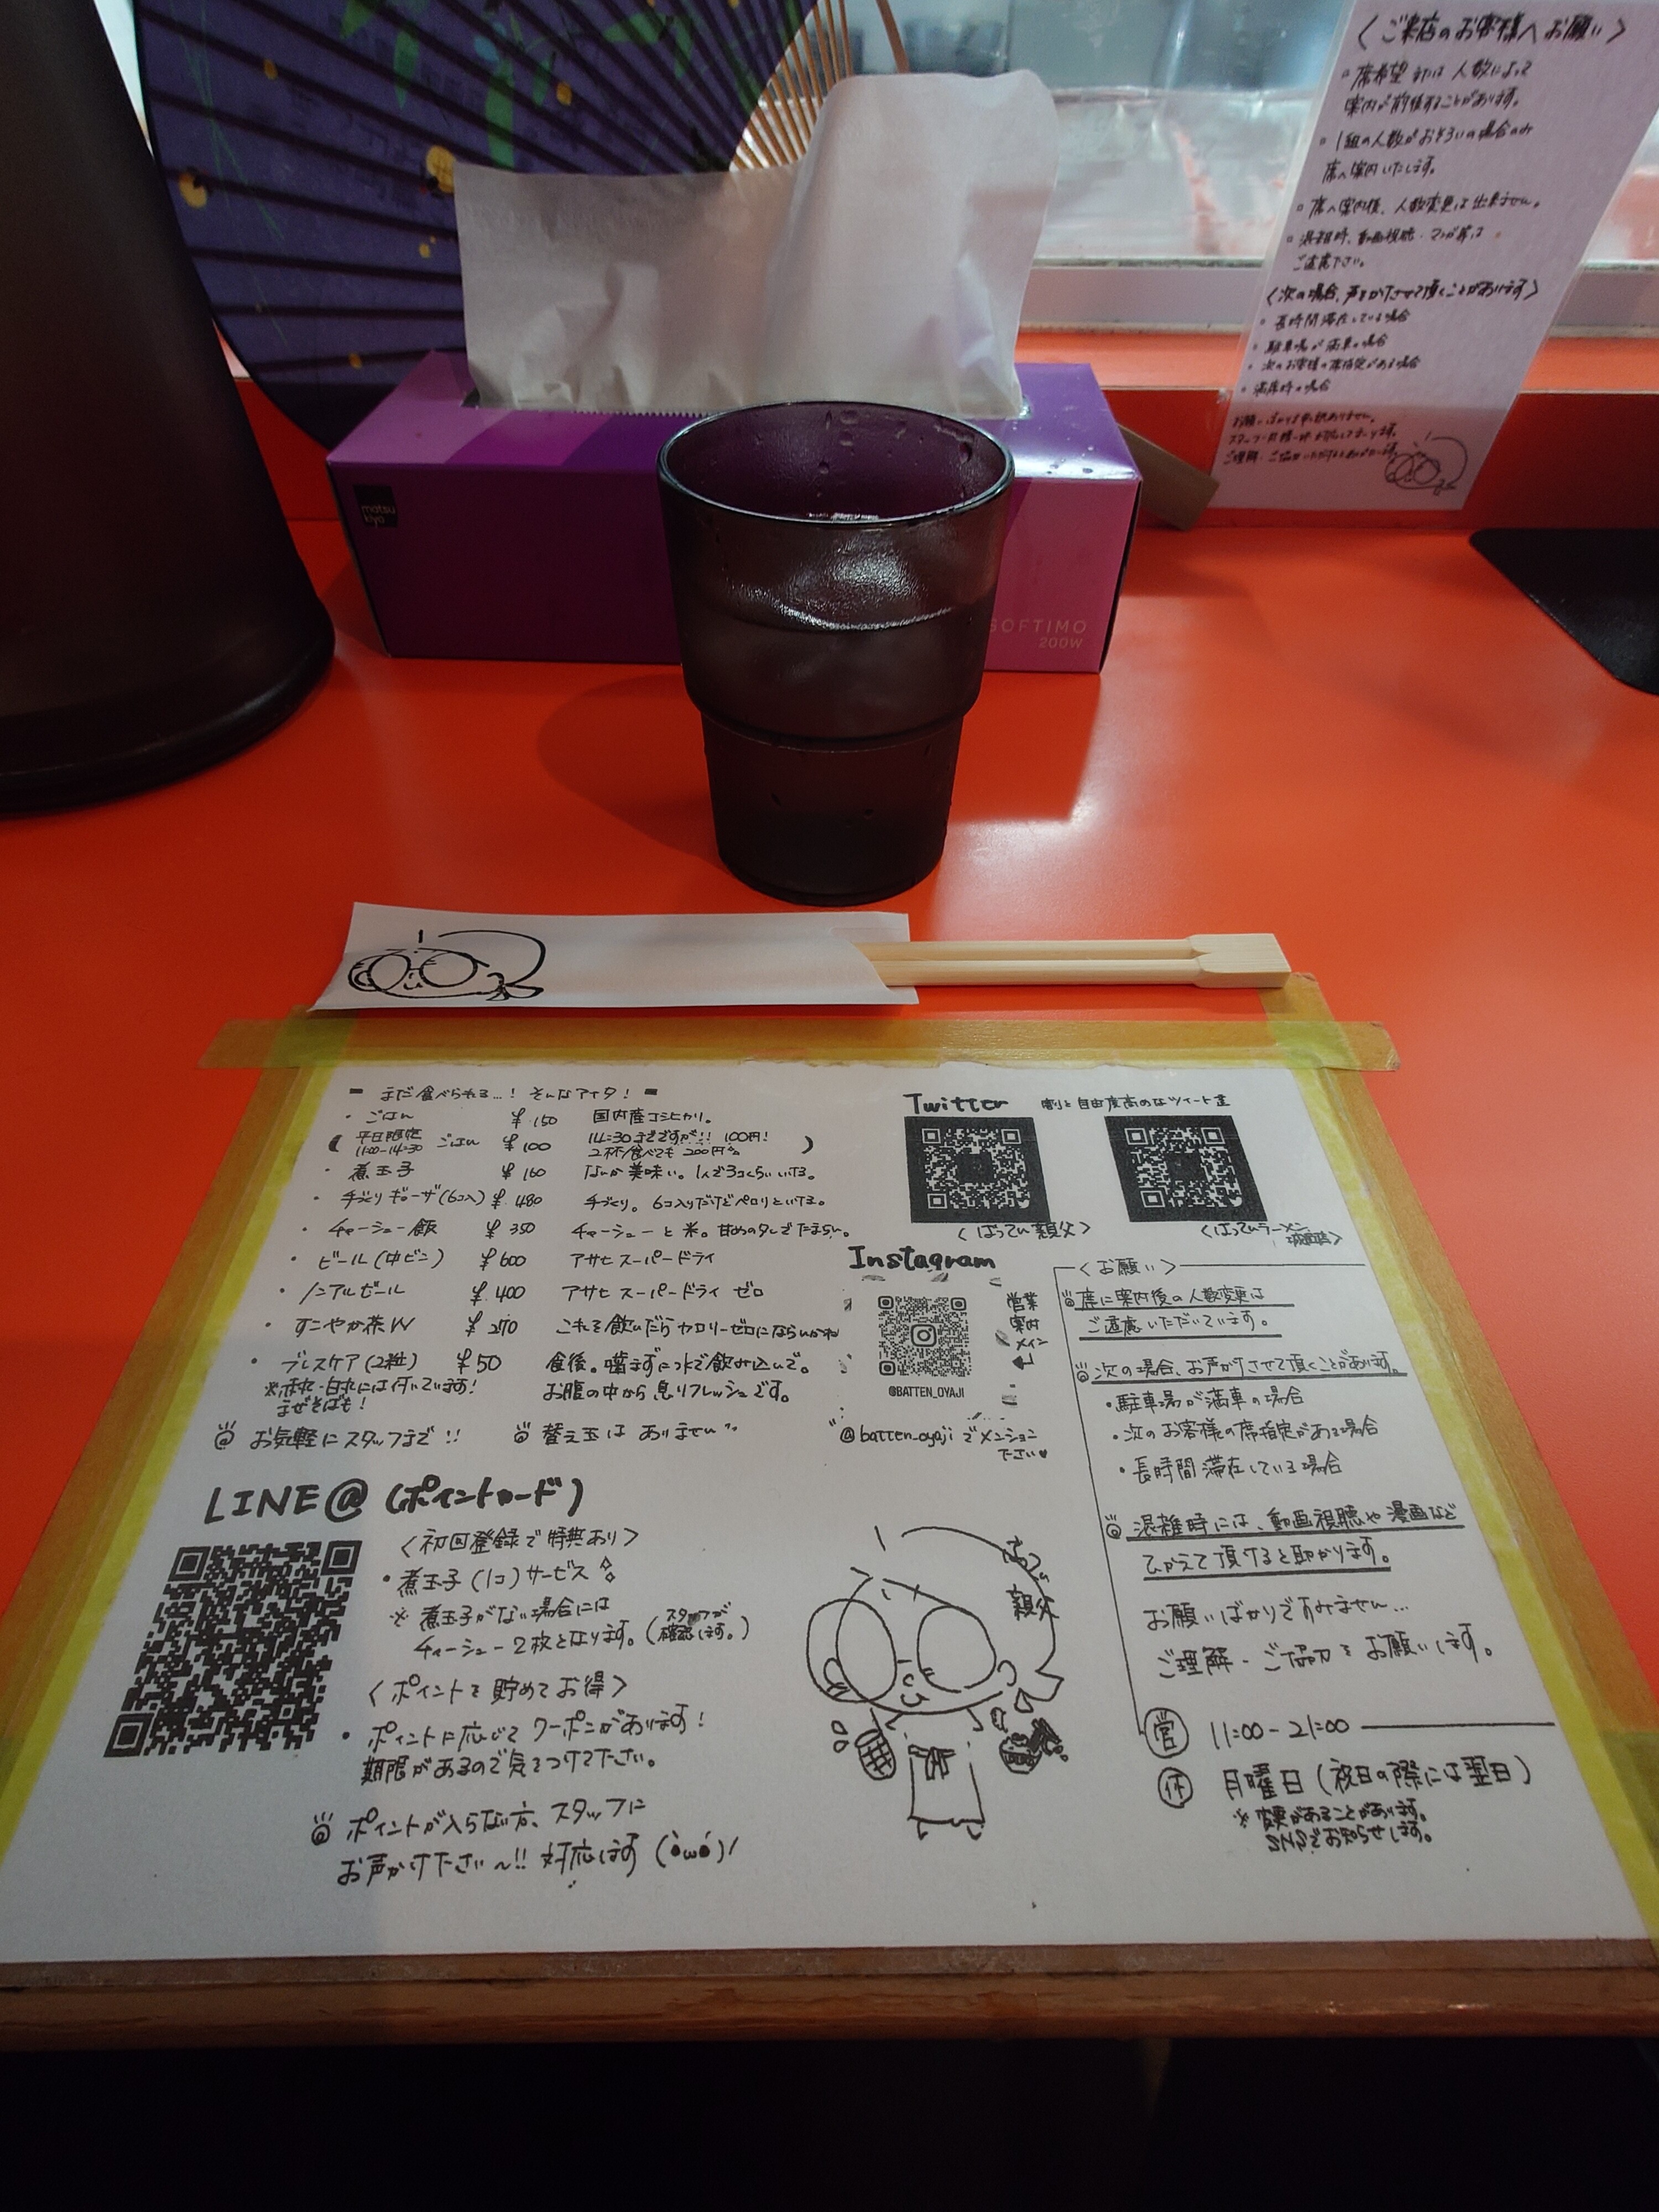 〈ご来店のお客様へお願い〉
・席希望または人数によって
案内が前後することがあります。
・1組の人数がおそろいの場合のみ
席へ案内いたします。
・席へ案内後、人数変更は出来ません。
・混雑時、動画視聴・マンガ等は
ご遠慮下さい。
〈次の場合、声をかけさせて頂くことがあります〉
・長時間滞在している場合
・駐車場が満車の場合
・次のお客様の席指定がある場合
・満席時の場合
お願いばかりで申し訳ありません。
ご理解・ご協力いただけると
matsu
kiyo
SOFTIMO
200W
= まだ食べられる…! そんなアイタ! =
・ごはん ¥150 国内産コシヒカリ。
(平日限定 11:00-14:30 ごはん ¥100 14:30までですが!! 100円! 2杯食べても200円 )
・煮玉子 ¥160 なんか美味い。1人で3コくらいいける。
・手づくりギョーザ(6コ入) ¥480 手づくり。6コ入りだけどペロリといける。
・チャーシュー飯 ¥350 チャーシューと米。甘めのタレでたまらん。
・ビール(中ビン) ¥600 アサヒスーパードライ
・ノンアルビール ¥400 アサヒスーパードライ ゼロ
・すこやか茶W ¥270 これを飲んだらカロリーゼロにならんかね
・ブレスケア(2粒) ¥50 食後。噛まずに水で飲み込んで。
※赤丸・白丸には付いています! お腹の中から息リフレッシュです。
まぜそばも!
お気軽にスタッフまで!! 替え玉はありません
Twitter 割と自由度高めなツイート達
〈ばってん親父〉 〈ばってんラーメン
Instagram
営業
案内
メイン
@BATTEN_OYAJI
@batten_oyaji でメンション
下さい♥
〈お願い〉
席に案内後の人数変更は
ご遠慮いただいています。
次の場合、お声がけさせて頂くことがあります。
・駐車場が満車の場合
・次のお客様の席指定がある場合
・長時間滞在している場合
混雑時には、動画視聴や漫画など
ひかえて頂けると助かります。
お願いばかりですみません…
ご理解・ご協力をお願いします。
営 11:00-21:00
休 月曜日(祝日の際には翌日)
※変更があることがあります。
SNSでお知らせします。
LINE@(ポイントカード)
〈初回登録で特典あり〉
・煮玉子(1コ)サービス
※煮玉子がない場合には
チャーシュー2枚となります。(スタッフが確認します。)
〈ポイントを貯めてお得〉
・ポイントに応じてクーポンがあります!
期限があるので気をつけて下さい。
ポイントが入らない方、スタッフに
お声かけ下さい〜!! 対応します(・ω・)/
ばってん
親父